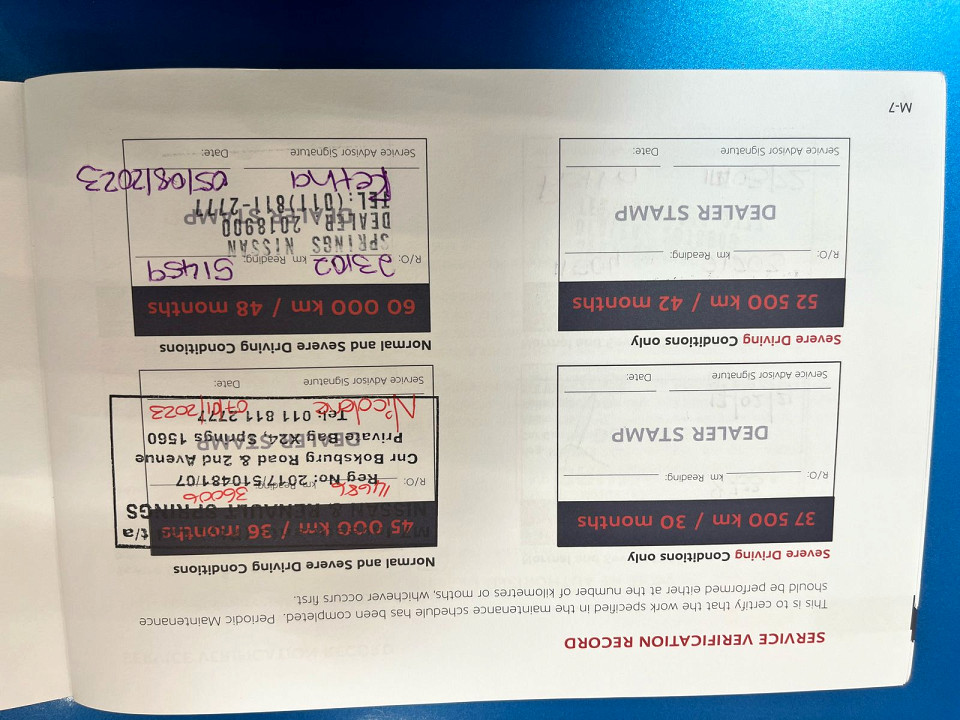 SERVICE VERIFICATION RECORD
This is to certify that the work specified in the maintenance schedule has been completed. Periodic Maintenance
should be performed either at the number of kilometres or moths, whichever occurs first.
Severe Driving Conditions only
37 500 km / 30 months
R/O: km Reading:
DEALER STAMP
Service Advisor Signature Date:
Normal and Severe Driving Conditions
45 000 km / 36 months
t/a
NISSAN & RENAULT SPRINGS
R/O: 14686 km Reading: 36006
Reg No: 2017/510481/07
Cnr Boksburg Road & 2nd Avenue
DEALER STAMP
Private Bag X24, Springs 1560
Tel: 011 811 2777
Nicolene 07/01/2023
Service Advisor Signature Date:
Severe Driving Conditions only
52 500 km / 42 months
R/O: km Reading:
DEALER STAMP
Service Advisor Signature Date:
Normal and Severe Driving Conditions
60 000 km / 48 months
R/O: 23102 km Reading: 51459
SPRINGS NISSAN
DEALER 2018900
DEALER STAMP
TEL:(011)811-2777
Retha 05/08/2023
Service Advisor Signature Date:
M-7